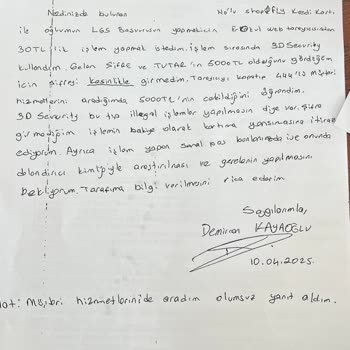 Nezdinizde bulunan No'lu shop&fly Kredi Kartı
ile oğlumun LGS Başvurusun yapmak için E-okul web tarayıcısından
30TL lik işlem yapmak istedim. İşlem sırasında 3D Security
kullandım. Gelen ŞİFRE ve TUTAR'ın 5000TL olduğunu gördüğüm
için şifreyi kesinlikle girmedim. Tarayıcıyı kapatıp 444'lü müşteri
hizmetlerini aradığımda 5000TL'nin çekildiğini öğrendim.
3D Security bu tip illegal işlemler yapılmasın diye var. Şifre
girmediğim işlemin bakiye olarak kartıma yansımasına itiraz
ediyorum. Ayrıca işlem yapan sanal pos bankanızda ise onunda
dolandırıcı kimliğiyle araştırılması ve gerekenin yapılmasını
bekliyorum. Tarafıma bilgi verilmesini rica ederim
Saygılarımla,
Demircan KAYAOĞLU
10.04.2025.
Not: Müşteri hizmetlerinide aradım olumsuz yanıt aldım.